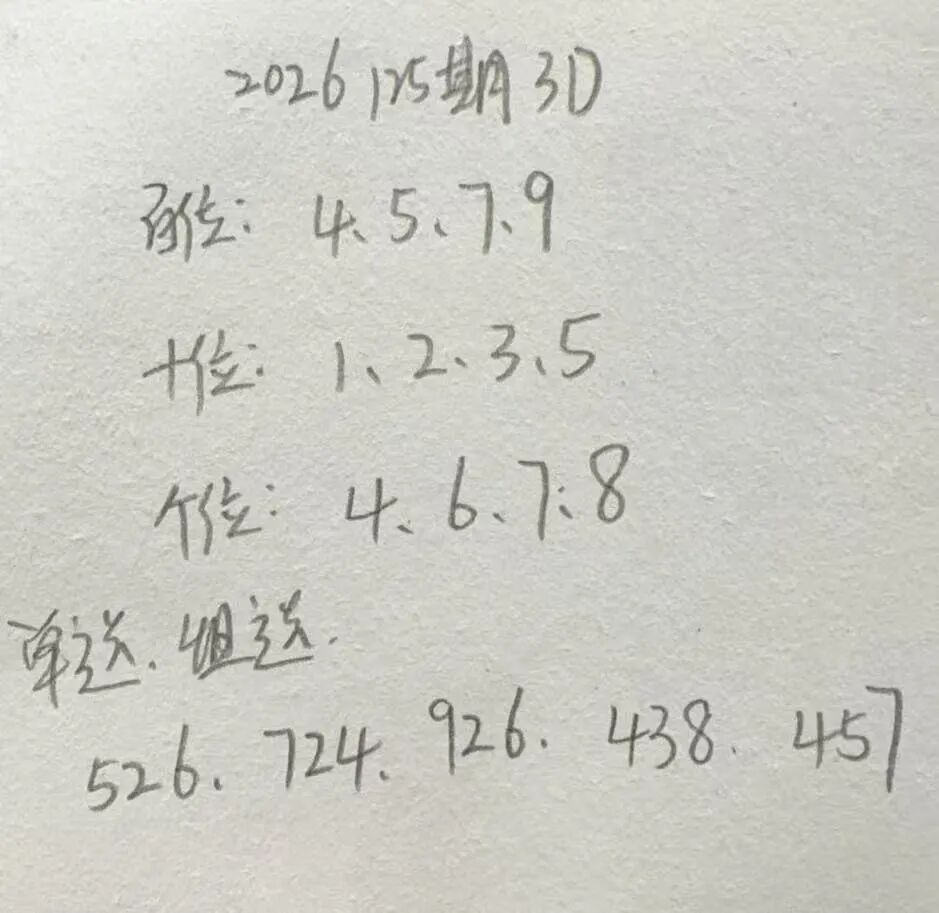 2026 125期 3D
百位: 4、5、7、9
十位: 1、2、3、5
个位: 4、6、7、8
单选、组选.
526、724、926. 438. 457